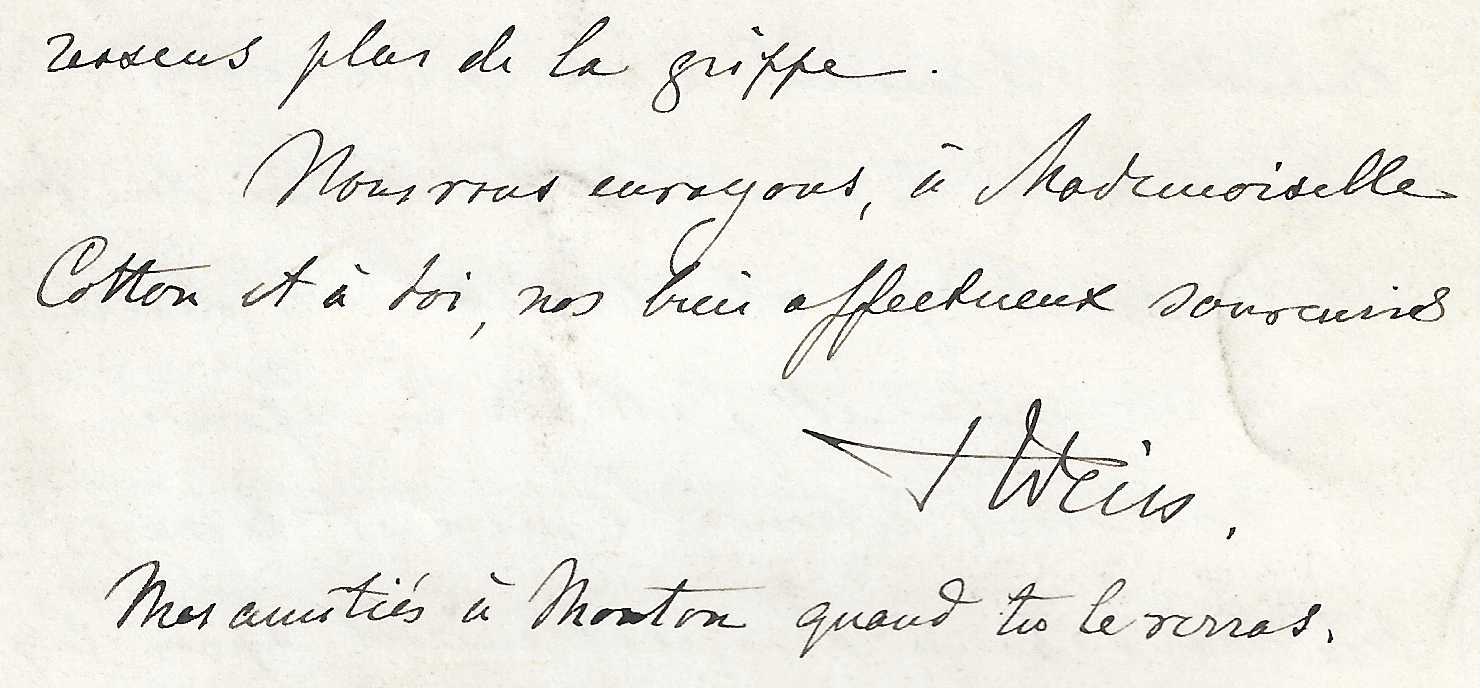 ressens plus de la grippe.
Nous vous envoyons, à Mademoiselle
Cotton et à toi, nos bien affectueux souvenirs
PWeiss.
Mes amitiés à Mouton quand tu le verras.